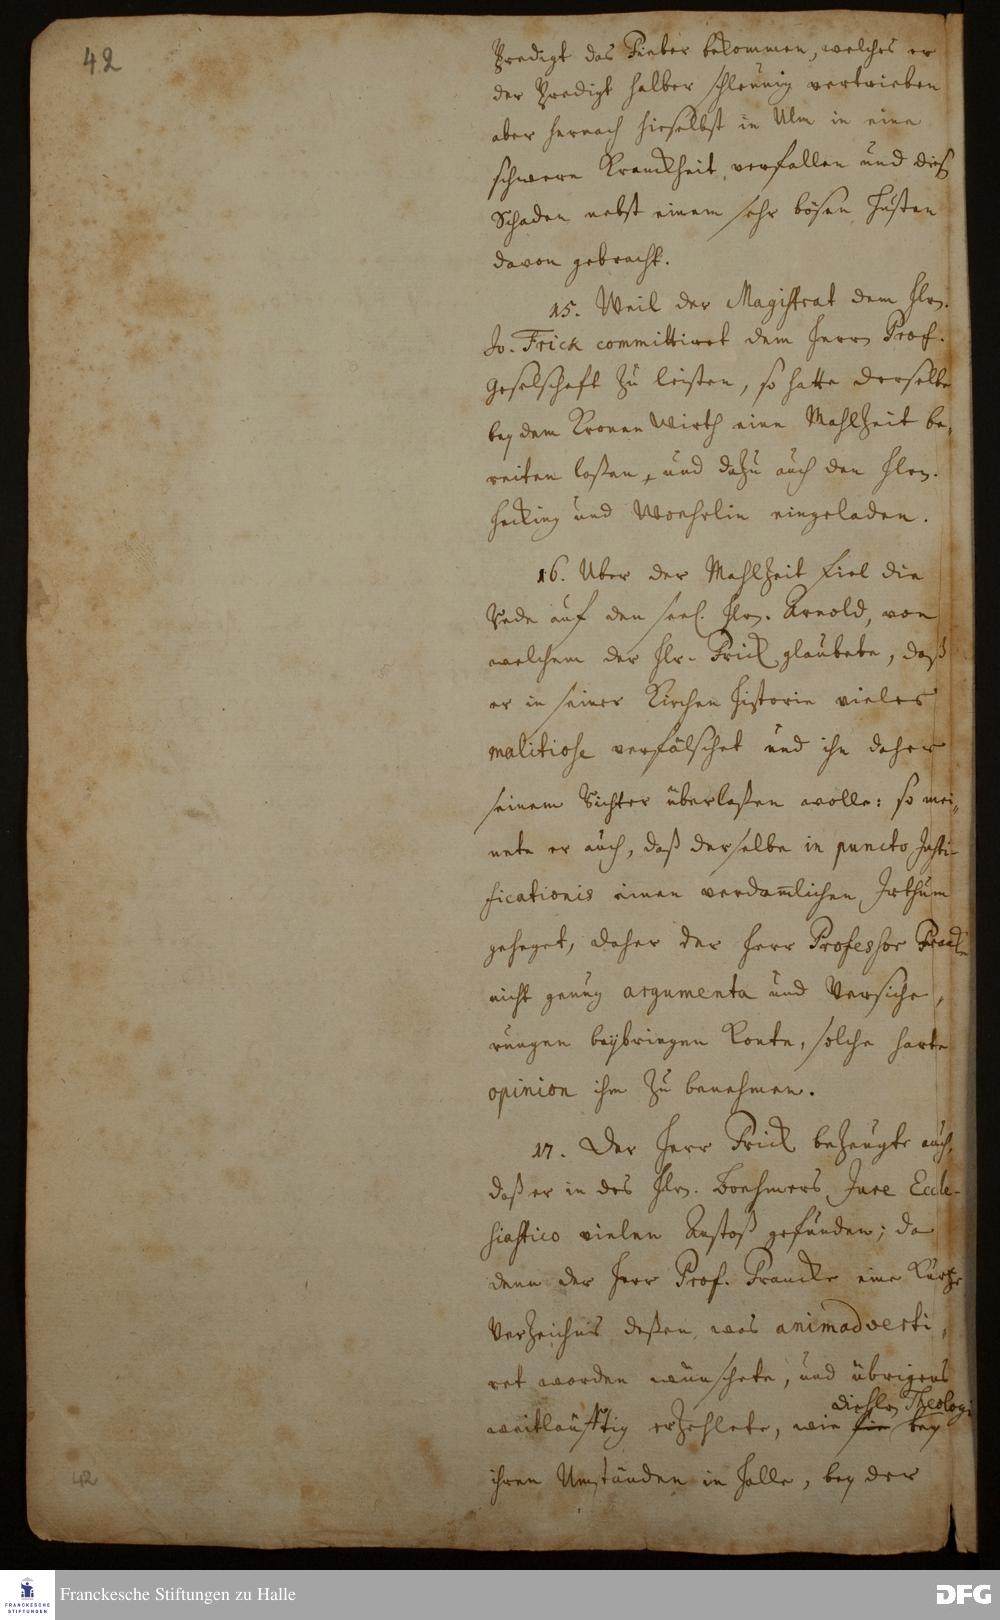 42
Predigt das Fieber bekommen, welches er
der Predigt halber schleunig vertrieben
aber hernach hieselbst in Ulm in eine
schwere Kranckheit verfallen und dieß
Schaden nebst einem sehr bösen Husten
davon gebracht.
15. Weil der Magistrat dem Hrn.
Jo. Frick committiret dem Herrn Prof.
Geselschaft zu leisten, so hatte derselbe
bey dem Kronen Wirth eine Mahlzeit be-
reiten laßen, und dazu auch den Hrn.
und Woehrlin eingeladen.
16. Uber der Mahlzeit fiel die
Rede auf den seel. Hrn. Arnold, von
welchem der Hr. Frick glaubete, daß
er in seiner Kirchen Historie vieles
malitiose verfälschet und ihn daher
seinem Richter überlaßen wolle: so mei-
nete er auch, daß derselbe in puncto Justi-
ficationis einen verdamlichen Irthum
geheget, daher der Herr Professor Franck
nicht genug argumenta und Versiche-
rungen beybringen konte, solche harte
opinion ihm zu benehmen.
17. Der Herr Frick bezeugte auch,
daß er in des Hrn. Boehmers Jure Eccle-
siastico vielen Anstoß gefunden; da
denn der Herr Prof. Francke eine kurtze
Verzeichnis deßen, was animadverti-
ret worden wünschete, und übrigens
weitläufftig erzehlete, wie die Hrn Theologi bey
ihren Umständen in Halle, bey der
42
FRANCKESCHE
STIFTUNGEN
Franckesche Stiftungen zu Halle
DFG